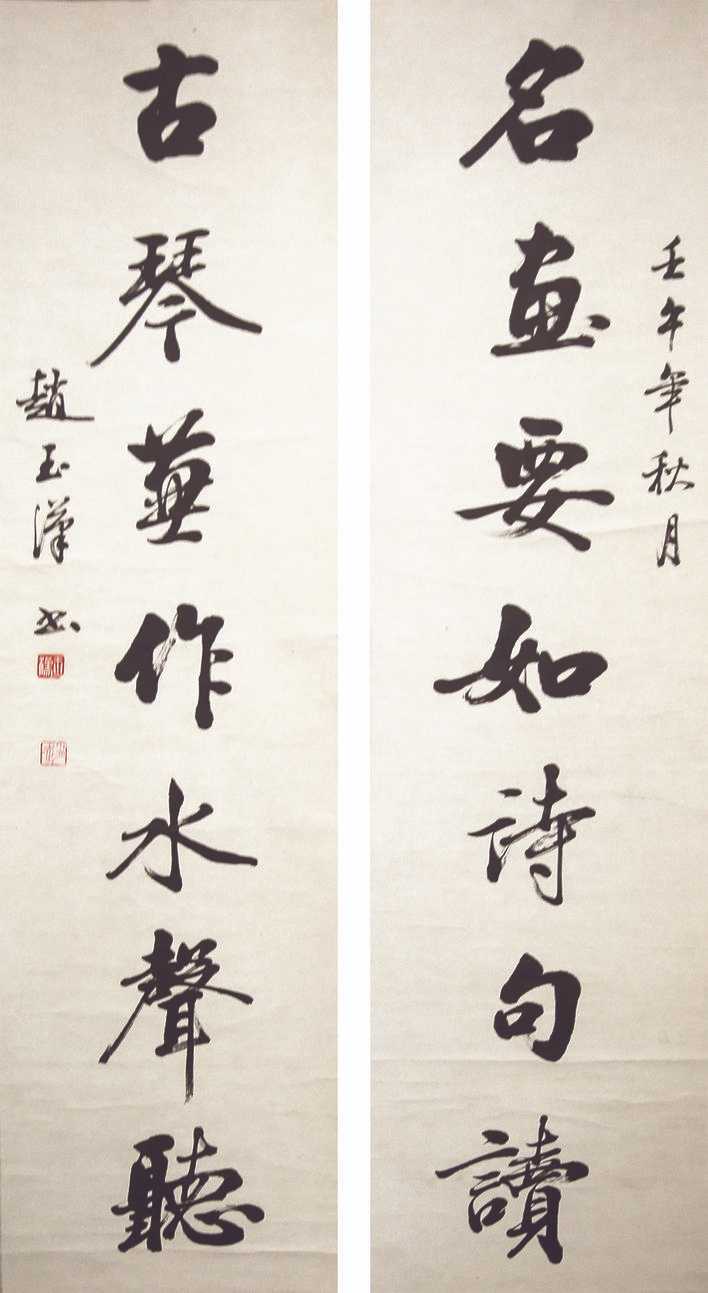 壬午年秋月
名畫要如詩句讀
古琴蒹作水聲聽
趙玉漢 書